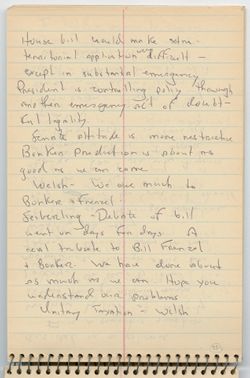 House bill would make extra-
territorial application very difficult –
except in substantial emergency
President is controlling policy through
another emergency act of doubt-
ful legality.
Senate attitude is more restrictive
Bonker prediction is about as
good as we can
Welsh – We owe much to
Bonker & Frenzel
Seiberling – Debate of bill
went on days for days. A
real tribute to Bill Frenzel
& Bonker. We have done about
as much as we can. Hope you
understand our problems
Unitary Taxation – Welsh